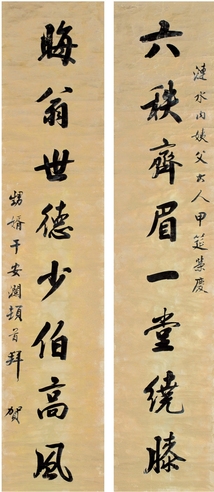 漣水內姨父大人甲筵榮慶
六秩齊眉一堂繞膝
晦翁世德少伯高風
甥婿干安瀾頓首拜賀